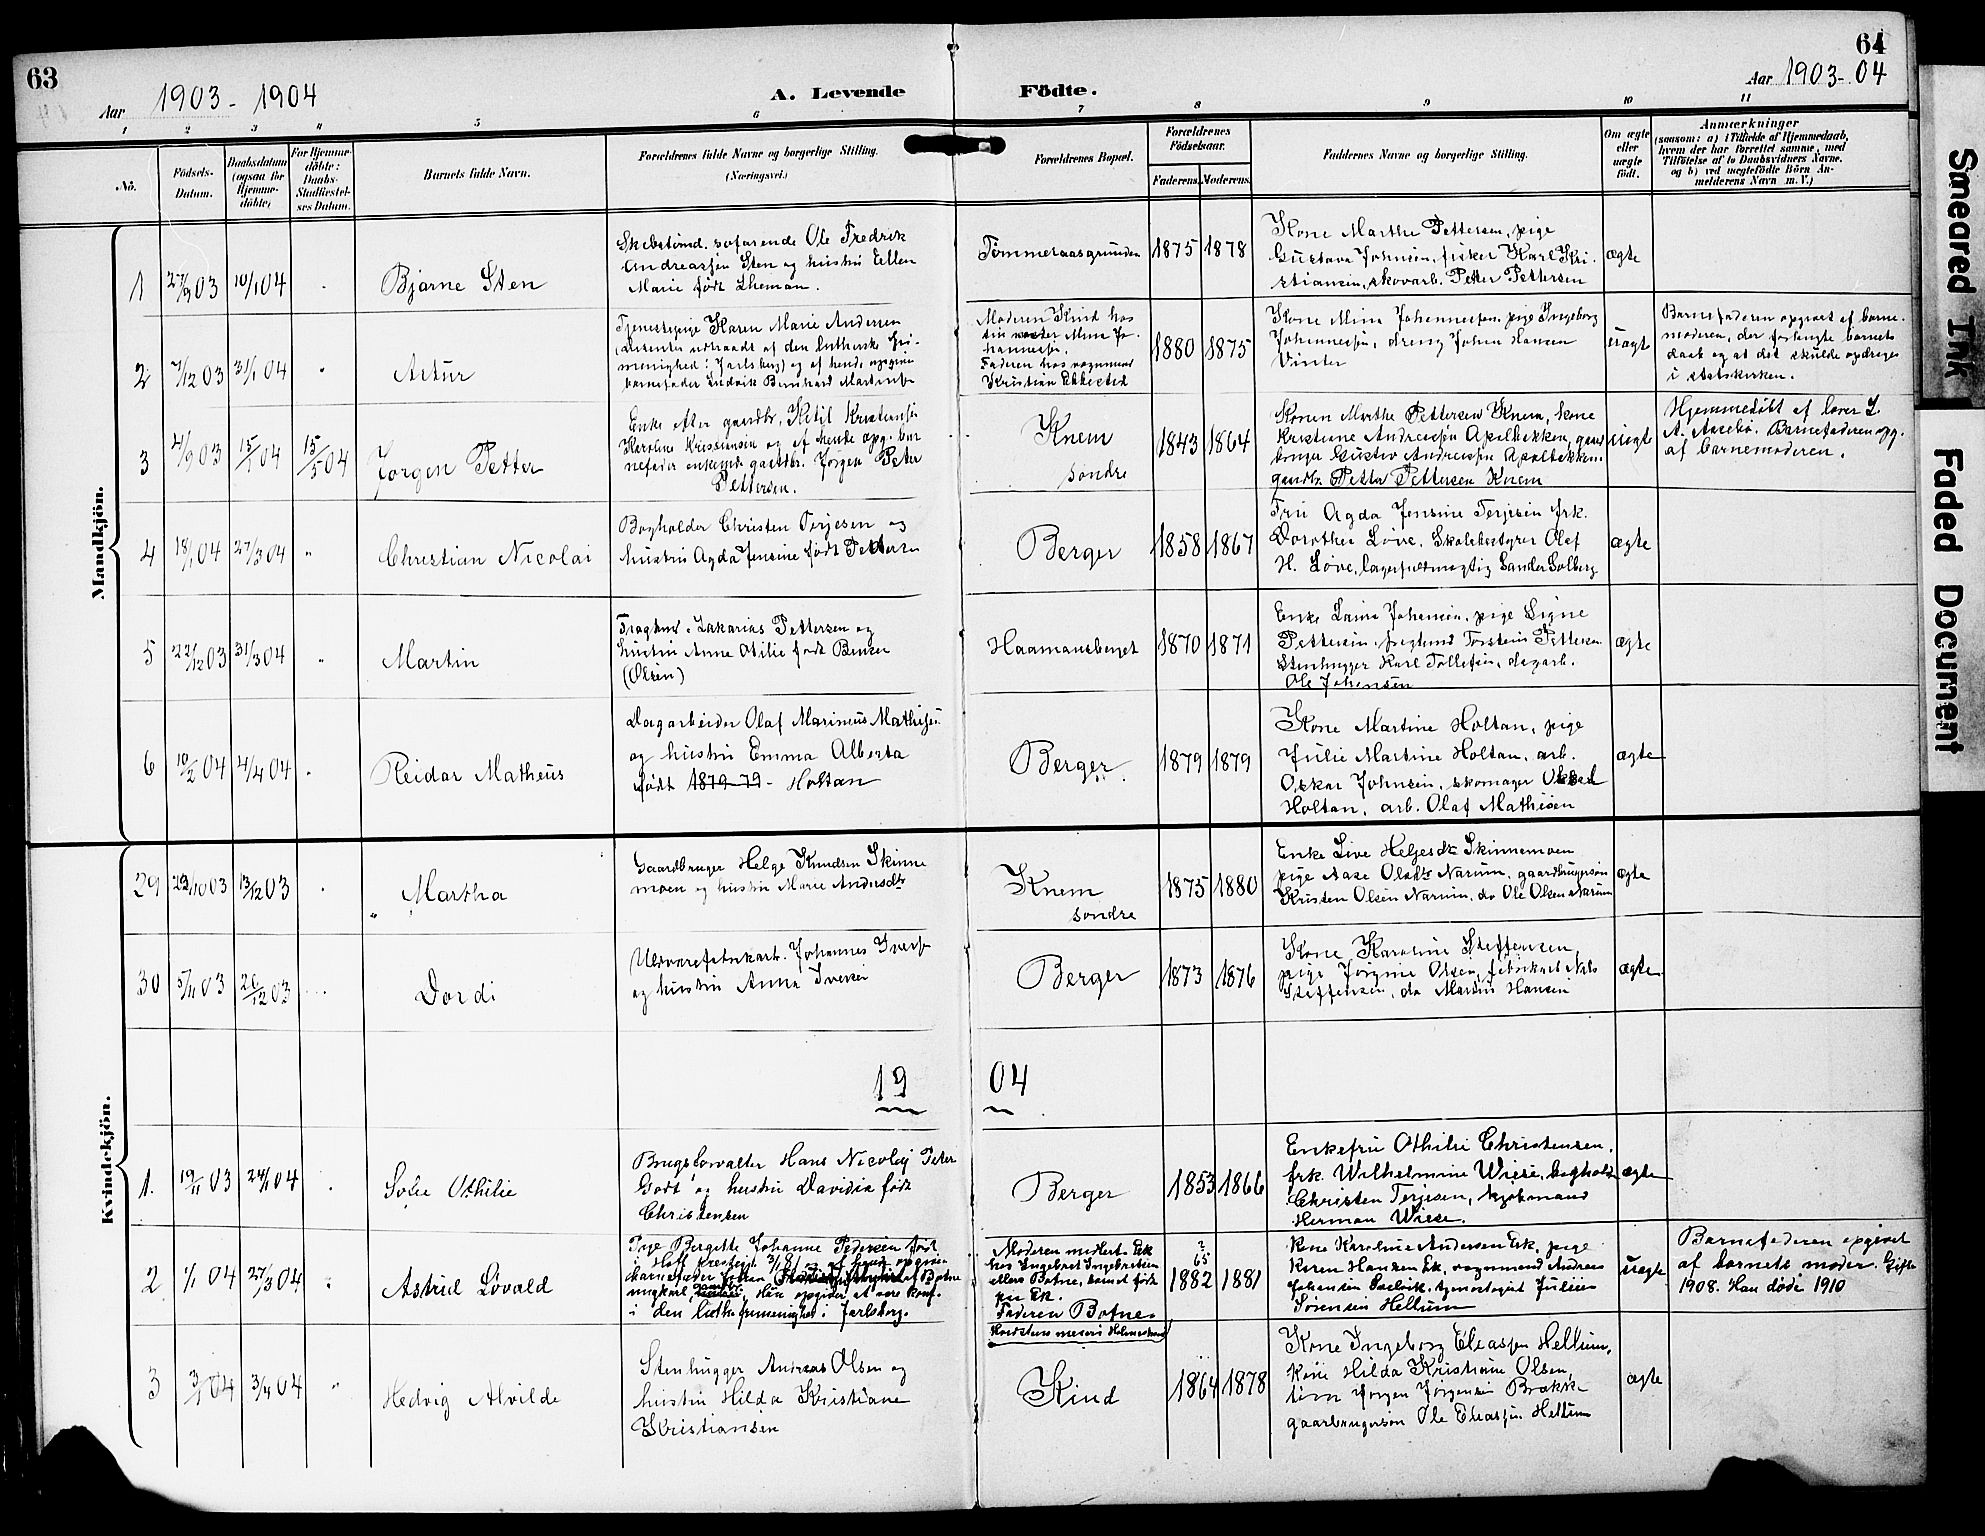 63
Aar 1903 - 1904
A. Levende
Födte.
64
Aar 1903-04
1 2 3 4 5 6 7 8 9 10 11
No.
Födsels-Datum.
Daabsdatum (ogsaa för Hjemme-döbte)
For Hjemme-döbte: Daabs-Stadfæstel-ses Datum.
Barnets fulde Navn.
Forældrenes fulde Navne og borgerlige Stilling.
(Næringsvei.)
Forældrenes Bopæl.
Forældrenes Födselsaar.
Faderens. Moderens.
Faddernes Navne og borgerlige Stilling.
Om ægte eller uægte födt.
Anmærkninger
(saasom: a) i Tilfælde af Hjemmedaab,
hvem der har forrettet samme, med
Tilföielse af to Daabsvidners Navne.
og b) ved uægtefödte Börn An-
melderens Navn m. V.)
Mandkjön.
1 27/9 03 10/1 04
Bjarne Sten
Skibstømd. søfarende Ole Fredrik
Andreassen Sten og hustru Ellen
Marie født Eheman.
Tømmeraasgrunden
1875 1878
Kone Marthe Pettersen, pige
Gustava Johnsen, fisker Karl Kri-
stiansen, skovarb. Petter Pettersen
ægte
2 7/12 03 31/1 04
Artur
Tjenestepige Karen Marie Andersen
(dissenter udtraadt af den lutherske fri-
menighed i Jarlsberg) og af hende opgiven
barnefader Ludvik Bernhard Martinsen
Moderen Kind hos
sin søster Mina Jo-
hannessen.
Faderen hos vognmand
Kristian Ekkested
1880 1875
Kone Mina Johannessen, pige Ingeborg
Johannessen, dreng Johan Hansen
Vinter
uægte
Barnefaderen opgivet af barne-
moderen, der forlangte barnets
daab og at det skulde opdrages
i statskirken.
3 4/9 03 15/1 04 15/5 04
Jørgen Petter
Enke efter gaardbr. Ketil Kristensen
Karoline Kristensen og af hende opg. bar
nefader enkemd gaardbr. Jørgen Peter
Pettersen.
Knem
søndre
1843 1864
Konen Marthe Pettersen Knem, kone
Kristiane Andreassen Apalbækken, gaard
bruger Gustav Andreassen Apalbækken
gaardbr. Petter Pettersen Knem
uægte
Hjemmedøbt af lærer L.
A. Aasebø. Barnefaderen opg.
af barnemoderen.
4 18/1 04 27/3 04
Christian Nicolai
Bogholder Christen Terjesen og
hustru Agda Jensine født Pettersen
Berger
1858 1867
Fru Agda Jensine Terjesen frk.
Dorothea Løve, Skolebestyrer Olaf
H. Løve, lagerfuldmægtig Sander Solberg
ægte
5 22/12 03 31/3 04
Martin
Fragtmd. Zakarias Pettersen og
hustru Anna Otilie født Berntsen
(Olsen)
Haamansberget
1870 1871
Enke Laura Johansen, pige Signe
Pettersen, Torstein Pettersen
Stenhugger Karl Tollefsen, dagarb.
Ole Johansen
ægte
6 10/2 04 4/4 04
Reidar Matheus
Dagarbeider Olaf Marinius Mathisen
og hustru Emma Alberta
født 1879-79- Holtan
Berger
1879 1879
Kone Martine Holtan, pige
Julie Martine Holtan, arb.
Oskar Johnsen, skomager
Holtan, arb. Olaf Mathisen
ægte
Kvindekjön.
29 29/10 03 13/12 03
Martha
Gaardbruger Helge Knudsen Skinne
moen og hustru Marie Andersdtr
Knem
søndre
1875 1880
Enke Live Helgesdtr Skinnemoen
pige Aase Olsdtr Narum, gaardbrugersøn
Kristen Olsen Narum, do Ole Olsen Narum
ægte
30 5/11 03 26/12 03
Dordi
Uldvarefabrikarb. Johannes Iversen
og hustru Anna Iversen
Berger
1873 1876
Kone Karoline Steffensen,
pige Jørgine Olsen, fabrikarb Nils
Steffensen, do Martin Hansen
ægte
19 04
1. 19/11 03 24/1 04
Solu Othilie
Brugsforvalter Hans Nicolay Peter
Godt og hustru Davidia født
Christensen
Berger
1853 1866
Enkefru Othilie Christensen,
frk. Wilhelmine Wiese, bogholder
Christen Terjesen, kjøbmand
Herman Wiese.
ægte
2 1/1 04 27/3 04
Astrid Løvald
Pige Bergitte Johanne Pedersen født
opgiven
barnefader Johan af Botne
ungkarl, Hun opgives at være konf.
i den luthe frimenighed i Jarlsberg.
Moderen midlert. Ek
hos Ingebret Ingebretsen
ellers Botne, barnet født
paa Ek.
Faderen Botne
1882 1881
Kone Karoline Andersen Ek, pige
Karen Hansen Ek, vognmand Andreas
Johansen Julius
Sørensen Hellum
uægte
Barnefaderen opgivet
af barnets moder. Gifte
1908. Han døde 1910
3 3/1 04 3/4 04
Hedvig Alvilde
Stenhugger Andreas Olsen og
hustru Hilda Kristiane
Kristiansen
Kind
1864 1878
Kone Ingeborg Eliassen Hellum,
kone Hilda Kristiane Olsen,
Jørgen Jørgensen Brække
gaarbrugersøn Ole Eliassen Hellum
ægte
Smeared Ink
Faded Document